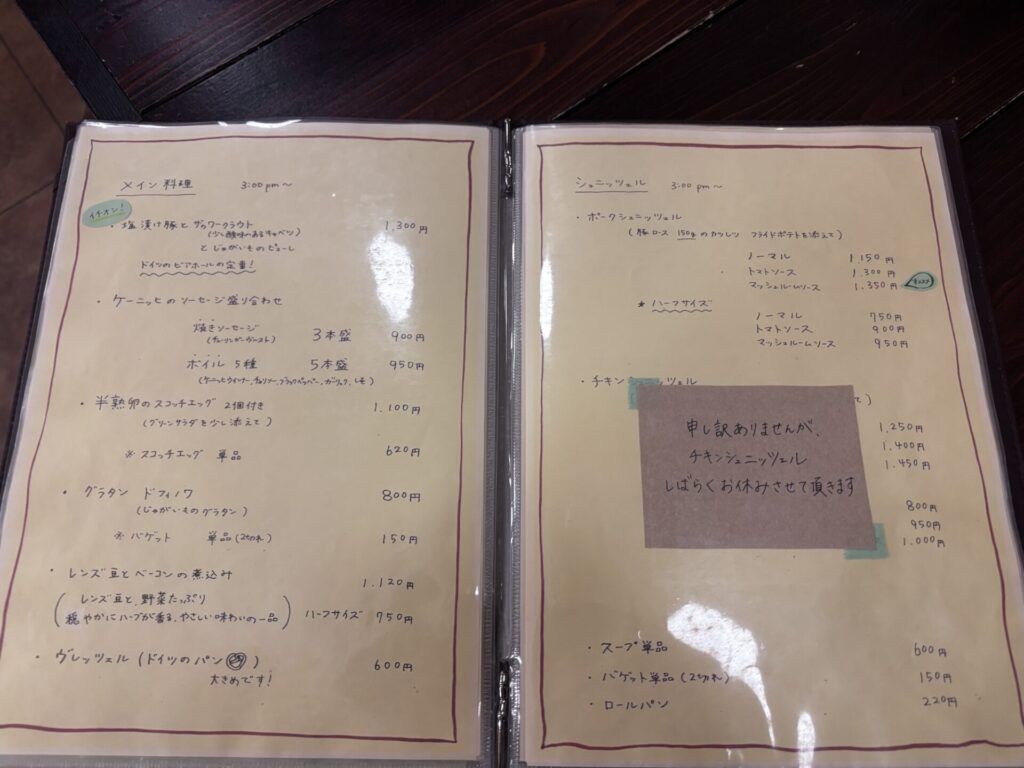 メイン料理 3:00 pm〜
イチオシ!
・塩漬け豚とザワークラウト 1,300円
(少し酸味のあるキャベツ)
とじゃがいものピューレ
ドイツのビアホールの定番!
・ケーニッヒのソーセージ盛り合わせ
焼きソーセージ 3本盛 900円
(チューリンガーブースト)
ボイル 5種 5本盛 950円
(ケーニッヒウインナー、チョリソー、ブラックペッパー、ガーリック、レモン)
・半熟卵のスコッチエッグ 2個付き 1.100円
(グリーンサラダを少し添えて)
※スコッチエッグ 単品 620円
・グラタン ドフィノワ 800円
(じゃがいものグラタン)
※バゲット 単品(2切れ) 150円
・レンズ豆とベーコンの煮込み 1.120円
(レンズ豆と、野菜たっぷり
穏やかにハーブが香る、やさしい味わいの一品) ハーフサイズ 750円
・ヴレッツェル(ドイツのパン) 600円
大きめです!
シュニッツェル 3:00 pm〜
・ポークシュニッツェル
(豚ロース 150gのカツレツ フライドポテトを添えて)
ノーマル 1.150円
トマトソース 1.300円
マッシュルームソース 1.350円
★ハーフサイズ
ノーマル 750円
トマトソース 900円
マッシュルームソース 950円
・チキンシュニッツェル
て)
申し訳ありませんが、
チキンシュニッツェル
しばらくお休みさせて頂きます
1,250円
1.400円
1.450円
800円
950円
1.000円
・スープ単品 600円
・バゲット単品(2切れ) 150円
・ロールパン 220円